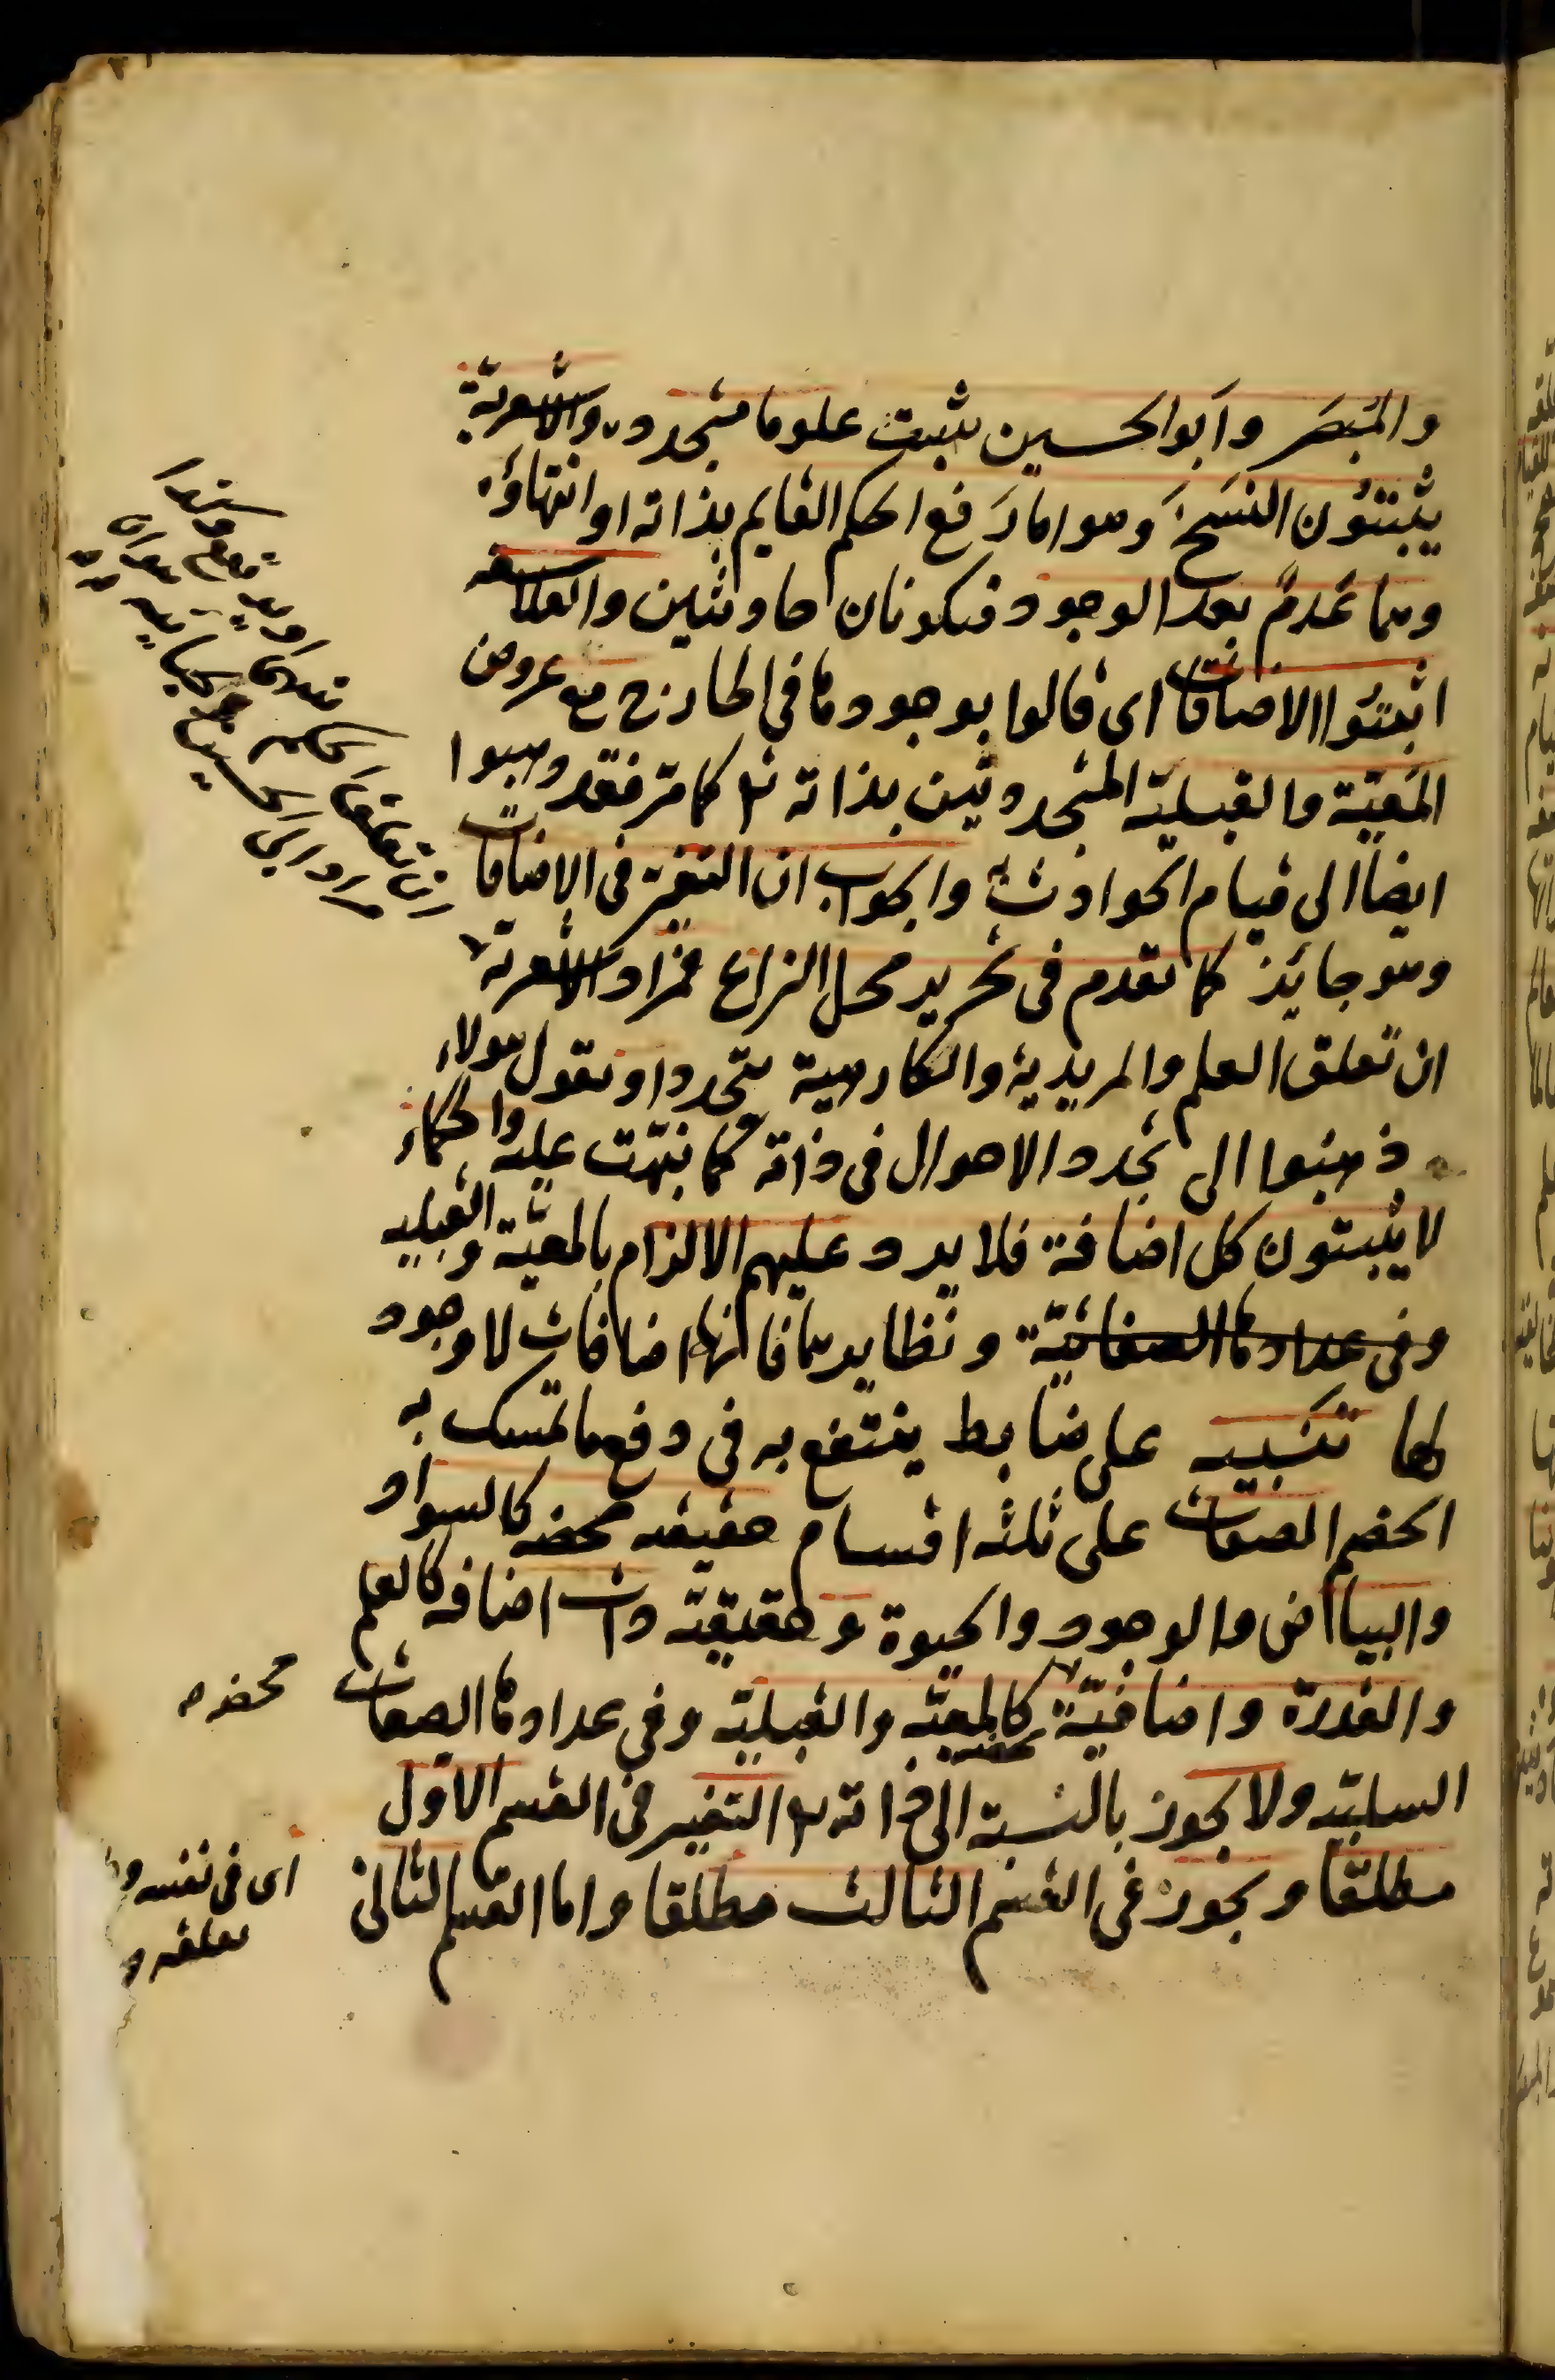 والمُبصَر وابو الحسين يثبت علوما متجددة والاشعرية
يثبتون النسخ وهو اما رفع الحكم القايم بذاته او انتهاؤه
وهما عدم بعد الوجود فيكونان حادثين والفلاسفة
اثبتوا الاضافات اى قالوا بوجودها فى الخارج مع عروض
المعيّة والقبليّة المتجددتين بذاته تع كما مر فقد ذهبوا
ايضا الى قيام الحوادث والجواب ان التغير فى الاضافات
وهو جائز كما تقدم فى تحرير محل النزاع فمراد الاشعرية
ان تعلق العلم والمريدية والكارهية يتجدد او نقول هولاء
ذهبوا الى تجدد الاحوال فى ذاته كما نبّهت عليه والحكماء
لا يثبتون كل اضافة فلا يرد عليهم الالزام بالمعيّة والقبلية
وفى عدادها الصفاتيّة ونظايرهما فانها اضافات لا وجود
لها تنبيه على ضابط ينتفع به فى دفع ما تمسك به
الخصم الصفات على ثلثه اقسام حقيقه محضه كالسواد
والبياض والوجود والحيوة وحقيقيّة ذات اضافه كالعلم
والقدرة واضافيّة كالمعيّة والقبليّة وفى عدادها الصفات
محضه
السلبيّه ولا يجوز بالنسبة الى ذاته تع التغير فى القسم الاول
مطلقا ويجوز فى القسم الثالث مطلقا واما القسم الثانى
اى فى نفسه